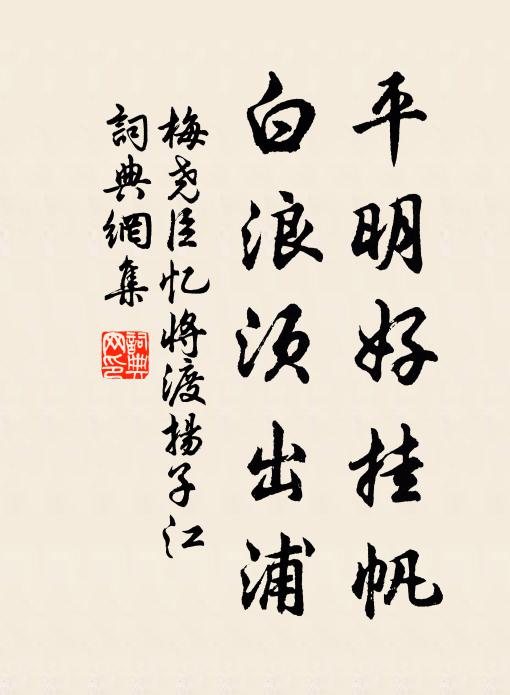 平明好挂帆
白浪须出浦
梅尧臣忆将渡扬子江
詞典網集
詞典网印